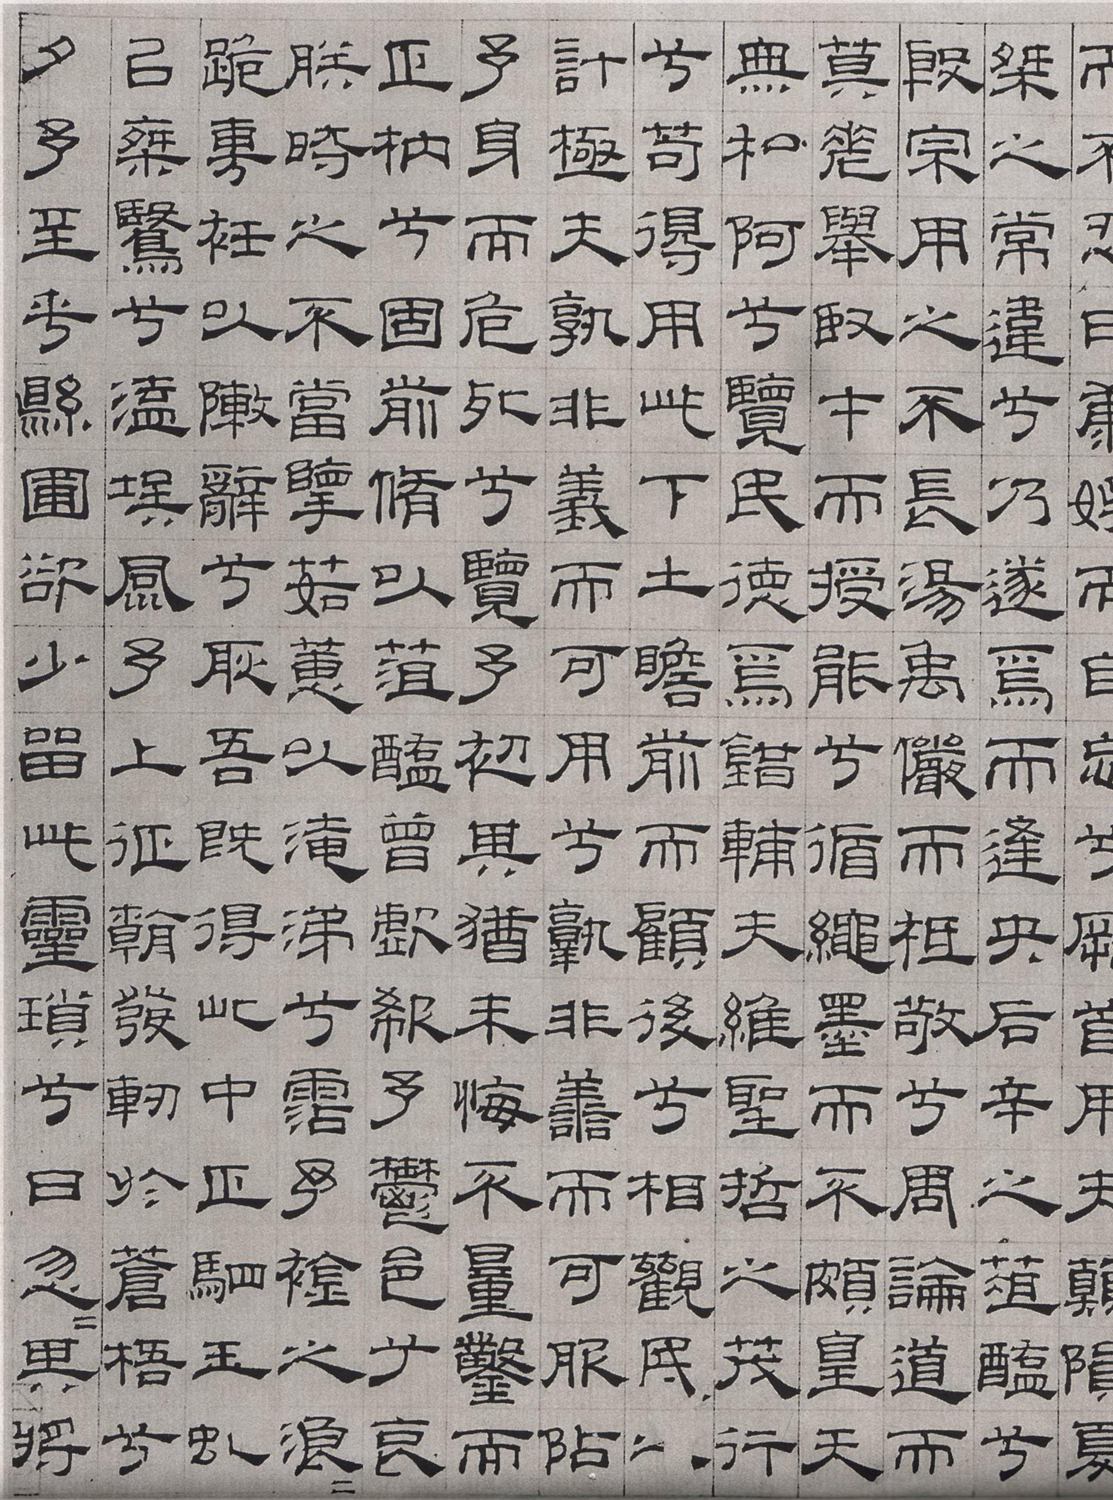 而不忍日康娛而自忘兮厥首用夫顛隕夏
桀之常違兮乃遂焉而逢央后辛之菹醢兮
殷宗用之不長湯禹儼而祗敬兮周論道而
莫差舉臤才而授能兮循繩墨而不頗皇天
無私阿兮覽民德焉錯輔夫維聖哲之茂行
兮苟得用此下土瞻前而顧後兮相觀民之
計極夫孰非義而可用兮孰非善而可服阽
予身而危死兮覽予初其猶未悔不量鑿而
正枘兮固前脩以菹醢曾歔欷予鬱邑兮哀
朕時之不當擥茹蕙以淹涕兮霑予襟之浪=
跪専衽以陳辭兮耿吾既得此中正駟玉虯
㠯椉鷖兮溘埃風予上征朝發軔於蒼梧兮
夕予至乎縣圃欲少留此靈瑣兮日忽=其將